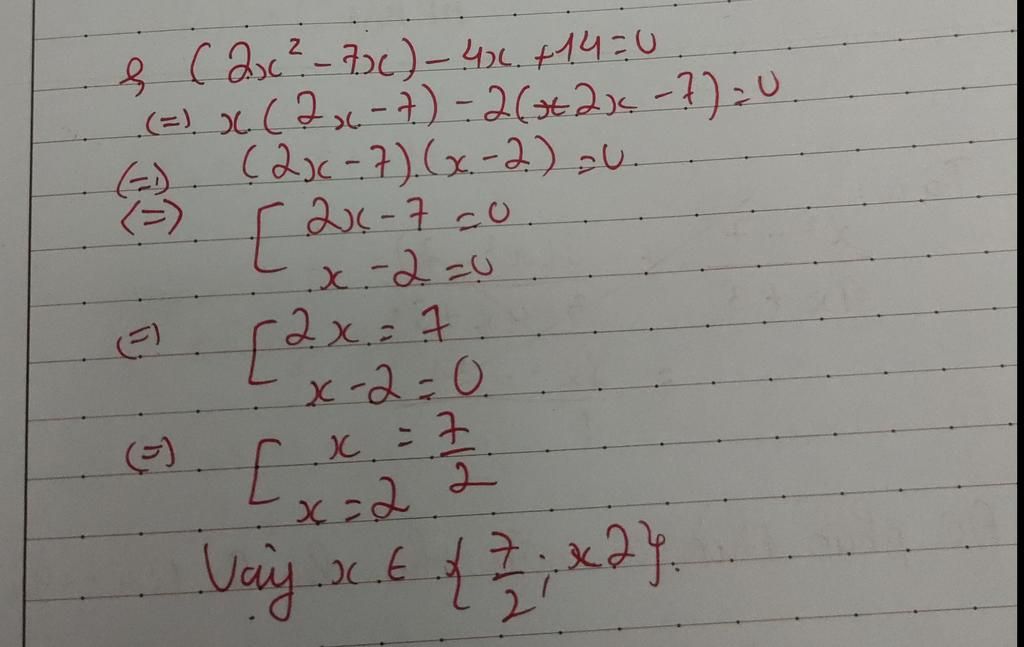 g (2x² - 7x) - 4x + 14 = 0
(=) x(2x - 7) - 2(x 2x - 7) = 0
(=) (2x - 7)(x - 2) = 0
(=) [ 2x - 7 = 0
x - 2 = 0
(=) [ 2x = 7
x - 2 = 0
(=) [ x = 7/2
x = 2
Vậy x ∈ { 7/2 ; x 2 }.